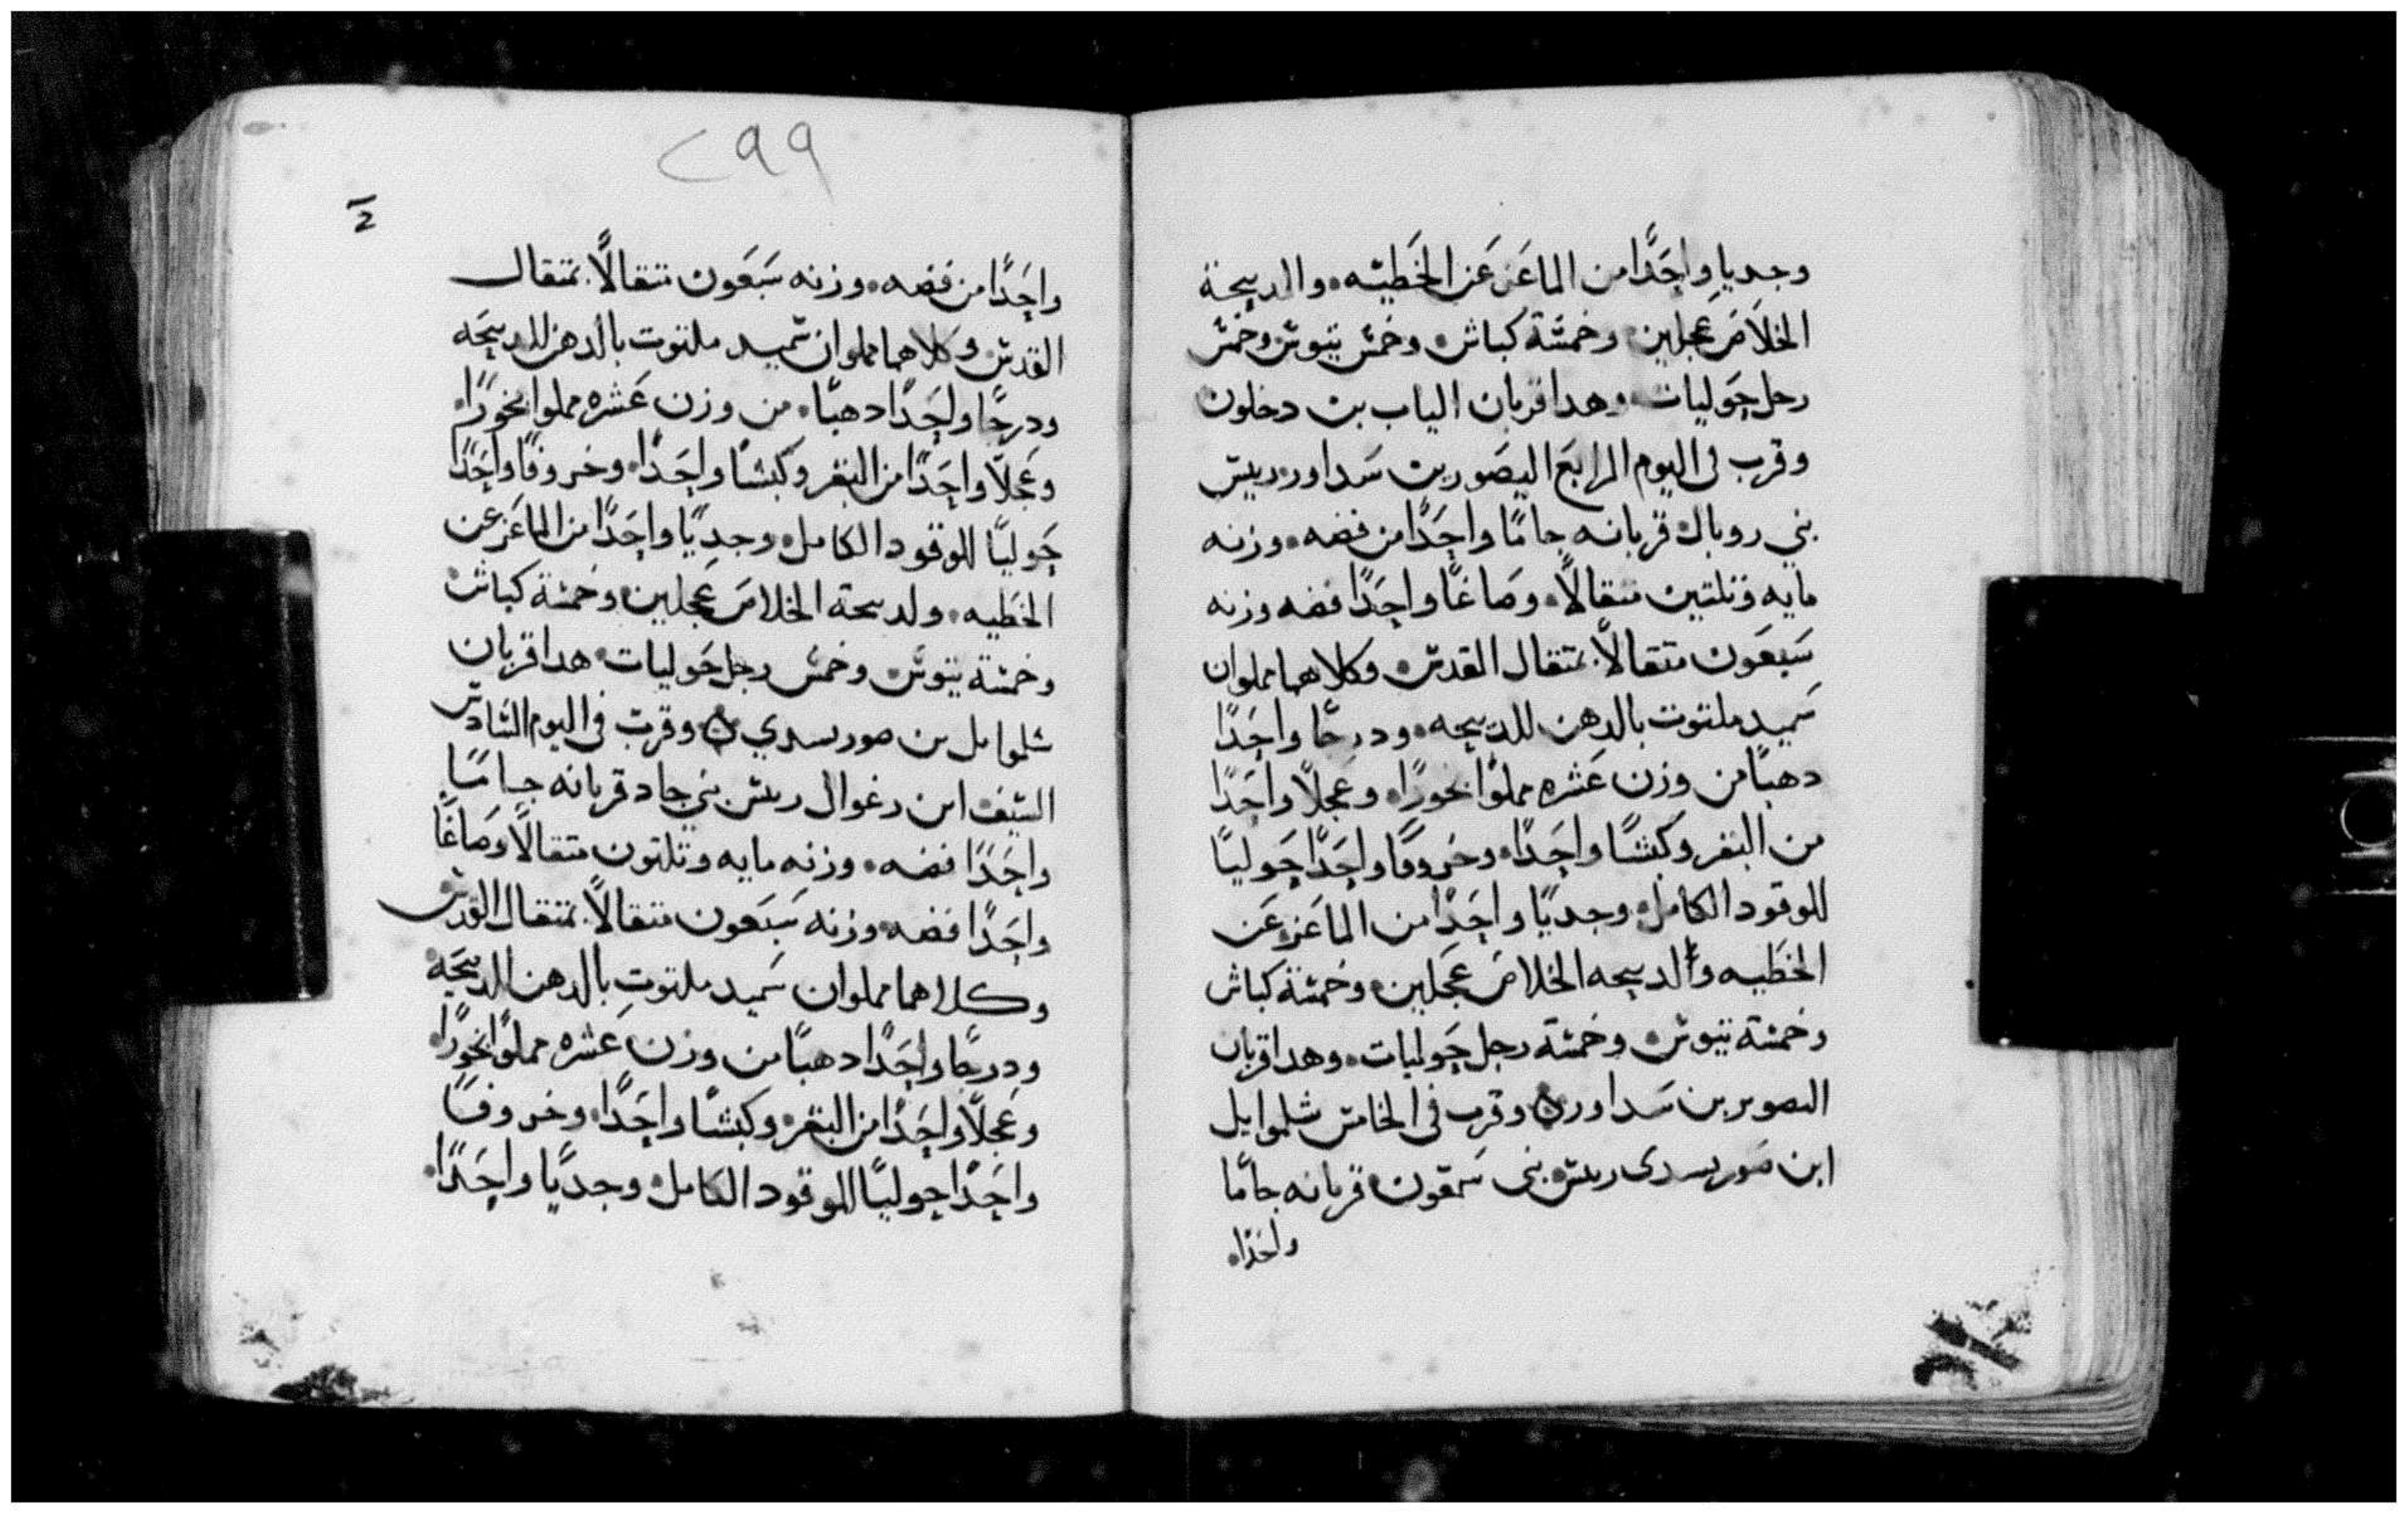 وجديا واحدًا من الماعز عن الخطيه، والدبيحة
الخلاص عجلين وخمسة كباش وخمس تيوس وخمس
رجل حوليات وهدا قربان الياب بن دحلون
وقرب في اليوم الرابع اليصور بن سداور ريس
بني روبال قربانه جامًا واحدًا من فضه، وزنه
مايه وتلتين متقالًا، وصاغًا واحدًا فضه وزنه
سبعون متقالًا بمتقال القدس وكلاهما مملوان
سميد ملتوت بالدهن للدبيحه، ودرجًا واحدًا
دهبًا من وزن عشره مملوا بخورًا، وعجلًا واحدًا
من البقر وكبشًا واحدًا، وخروفًا واحدًا حوليًا
للوقود الكامل، وجديًا واحدًا من الماعز عن
الخطيه والدبيحه الخلاص عجلين وخمسة كباش
وخمسة تيوس وخمسة رجل حوليات، وهدا قربان
اليصور بن سداور ۞ وقرب في الخامس شلموايل
ابن صوريسدى ريس بنى سمعون قربانه جامًا
واحدًا،
٢٩٩
واحدًا من فضه، وزنه سبعون متقالًا بمتقال
القدس وكلاهما مملوان سميد ملتوت بالدهن للدبيحه
ودرجًا واحدًا دهبًا، من وزن عشره مملوا بخورًا،
وعجلًا واحدًا من البقر وكبشًا واحدًا، وخروفًا واحدًا
حوليًا للوقود الكامل، وجديًا واحدًا من الماعز عن
الخطيه، ولدبيحة الخلاص عجلين وخمسة كباش
وخمسة تيوس وخمس رجل حوليات، هدا قربان
شلموايل بن صوريسدي ۞ وقرب في اليوم السادس
اليسف ابن رغوال ريس بني جاد قربانه جامًا
واحدًا فضه، وزنه مايه وتلتون متقالًا وصاغًا
واحدًا فضه، وزنه سبعون متقالًا بمتقال القدس
وكلاهما مملوان سميد ملتوت بالدهن للدبيحه
ودرجًا واحدًا دهبًا من وزن عشره مملوًا بخورًا،
وعجلًا واحدًا من البقر، وكبشًا واحدًا، وخروفًا
واحدًا حوليًا للوقود الكامل، وجديًا واحدًا،